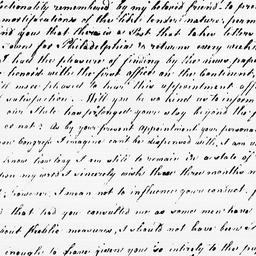 tionality remembered by my beloved friend to pro
modifications of the kind tender nature, from
ind you that there is a Post that takes letters
Town for Philadelphia & returns every week
I had the pleasure of finding by the news pape
honor'd with the first office on the Continent,
ill more pleased to hear this appointment aff
satisfaction. Will you be so kind as to inform
our State has prolonged your stay beyond the p
or not? As by your present appointment your persona
on Congress I imagine can't be dispensed with. I am w
know how long I am still to remain in a state of
on my word I sincerely wish these three months m
However I mean not to influence your conduct, p
that had you consulted me as some men have
bout Public measures, I should not have been w
enough to leave given you so entirely to the pu